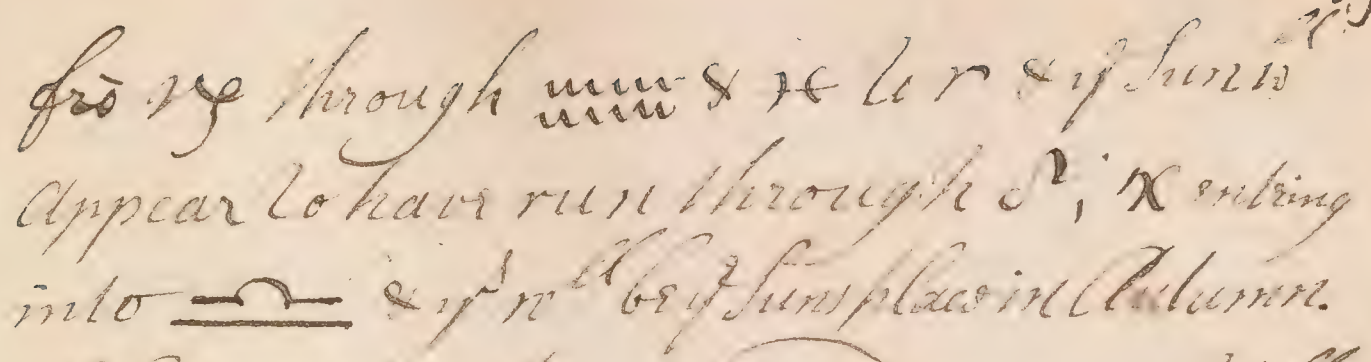 frō ♑ through ♒ & ♓ to ♈ & yᵉ Sun wᵈ
appear to have run through ♌, ♍ entring
into ♎ & yᵗ wˡˡ be yᵉ Suns place in Autumn.